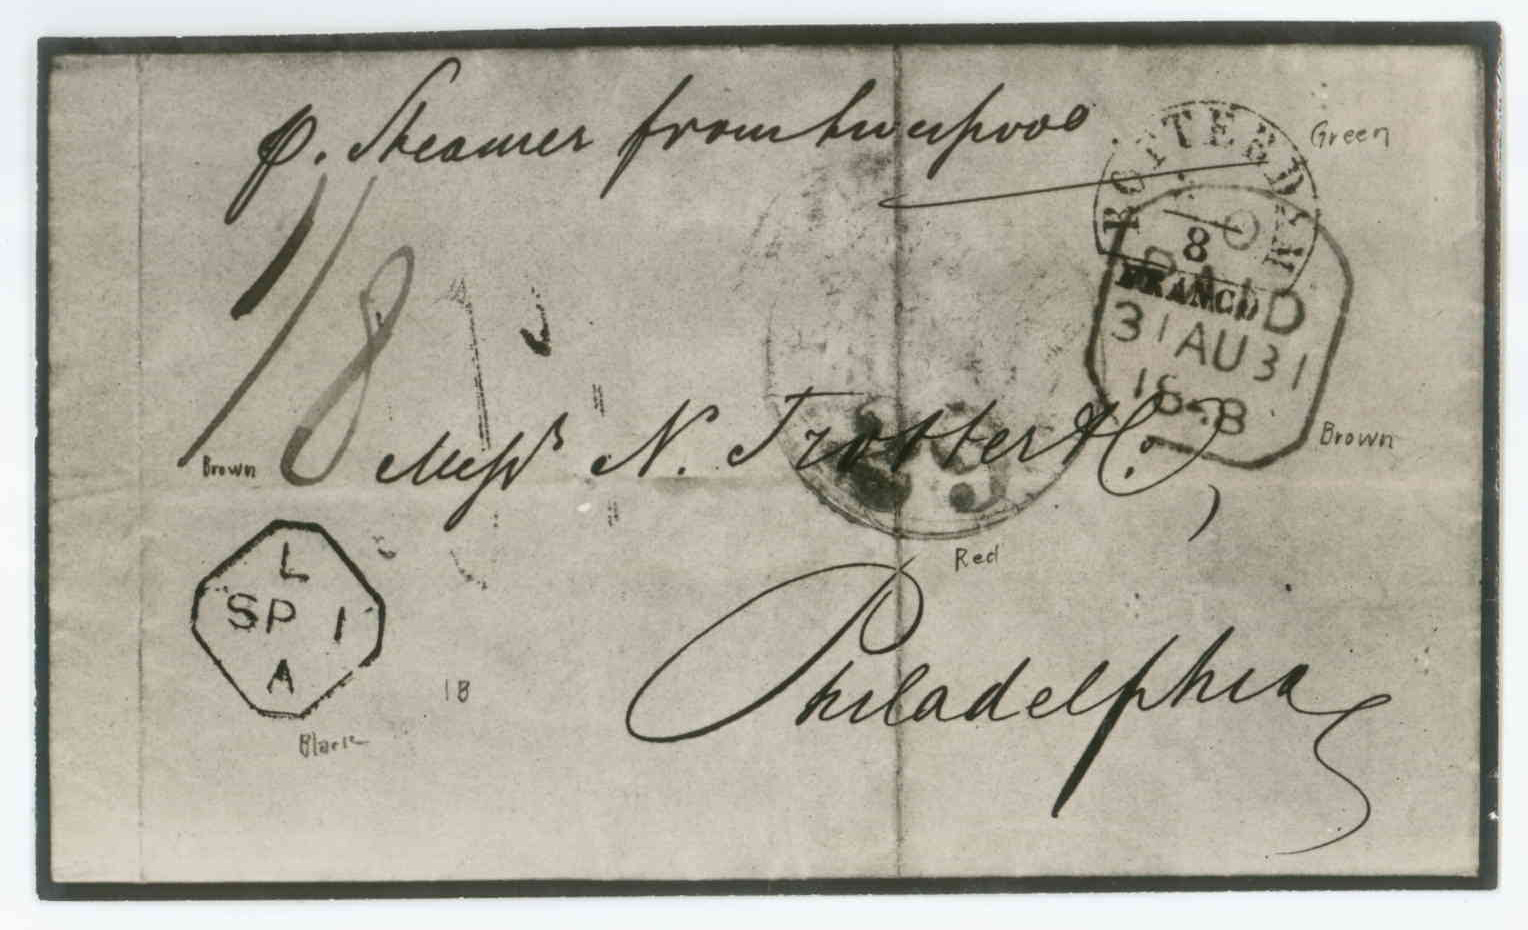 p. Steamer from Liverpool
ROTTERDAM
8
FRANCO
Green
PAID
31 AU 31
Brown
1/8
Brown
Messrs N. Trotter & Co.,
Red
L
SP 1
A
Black
1B
Philadelphia